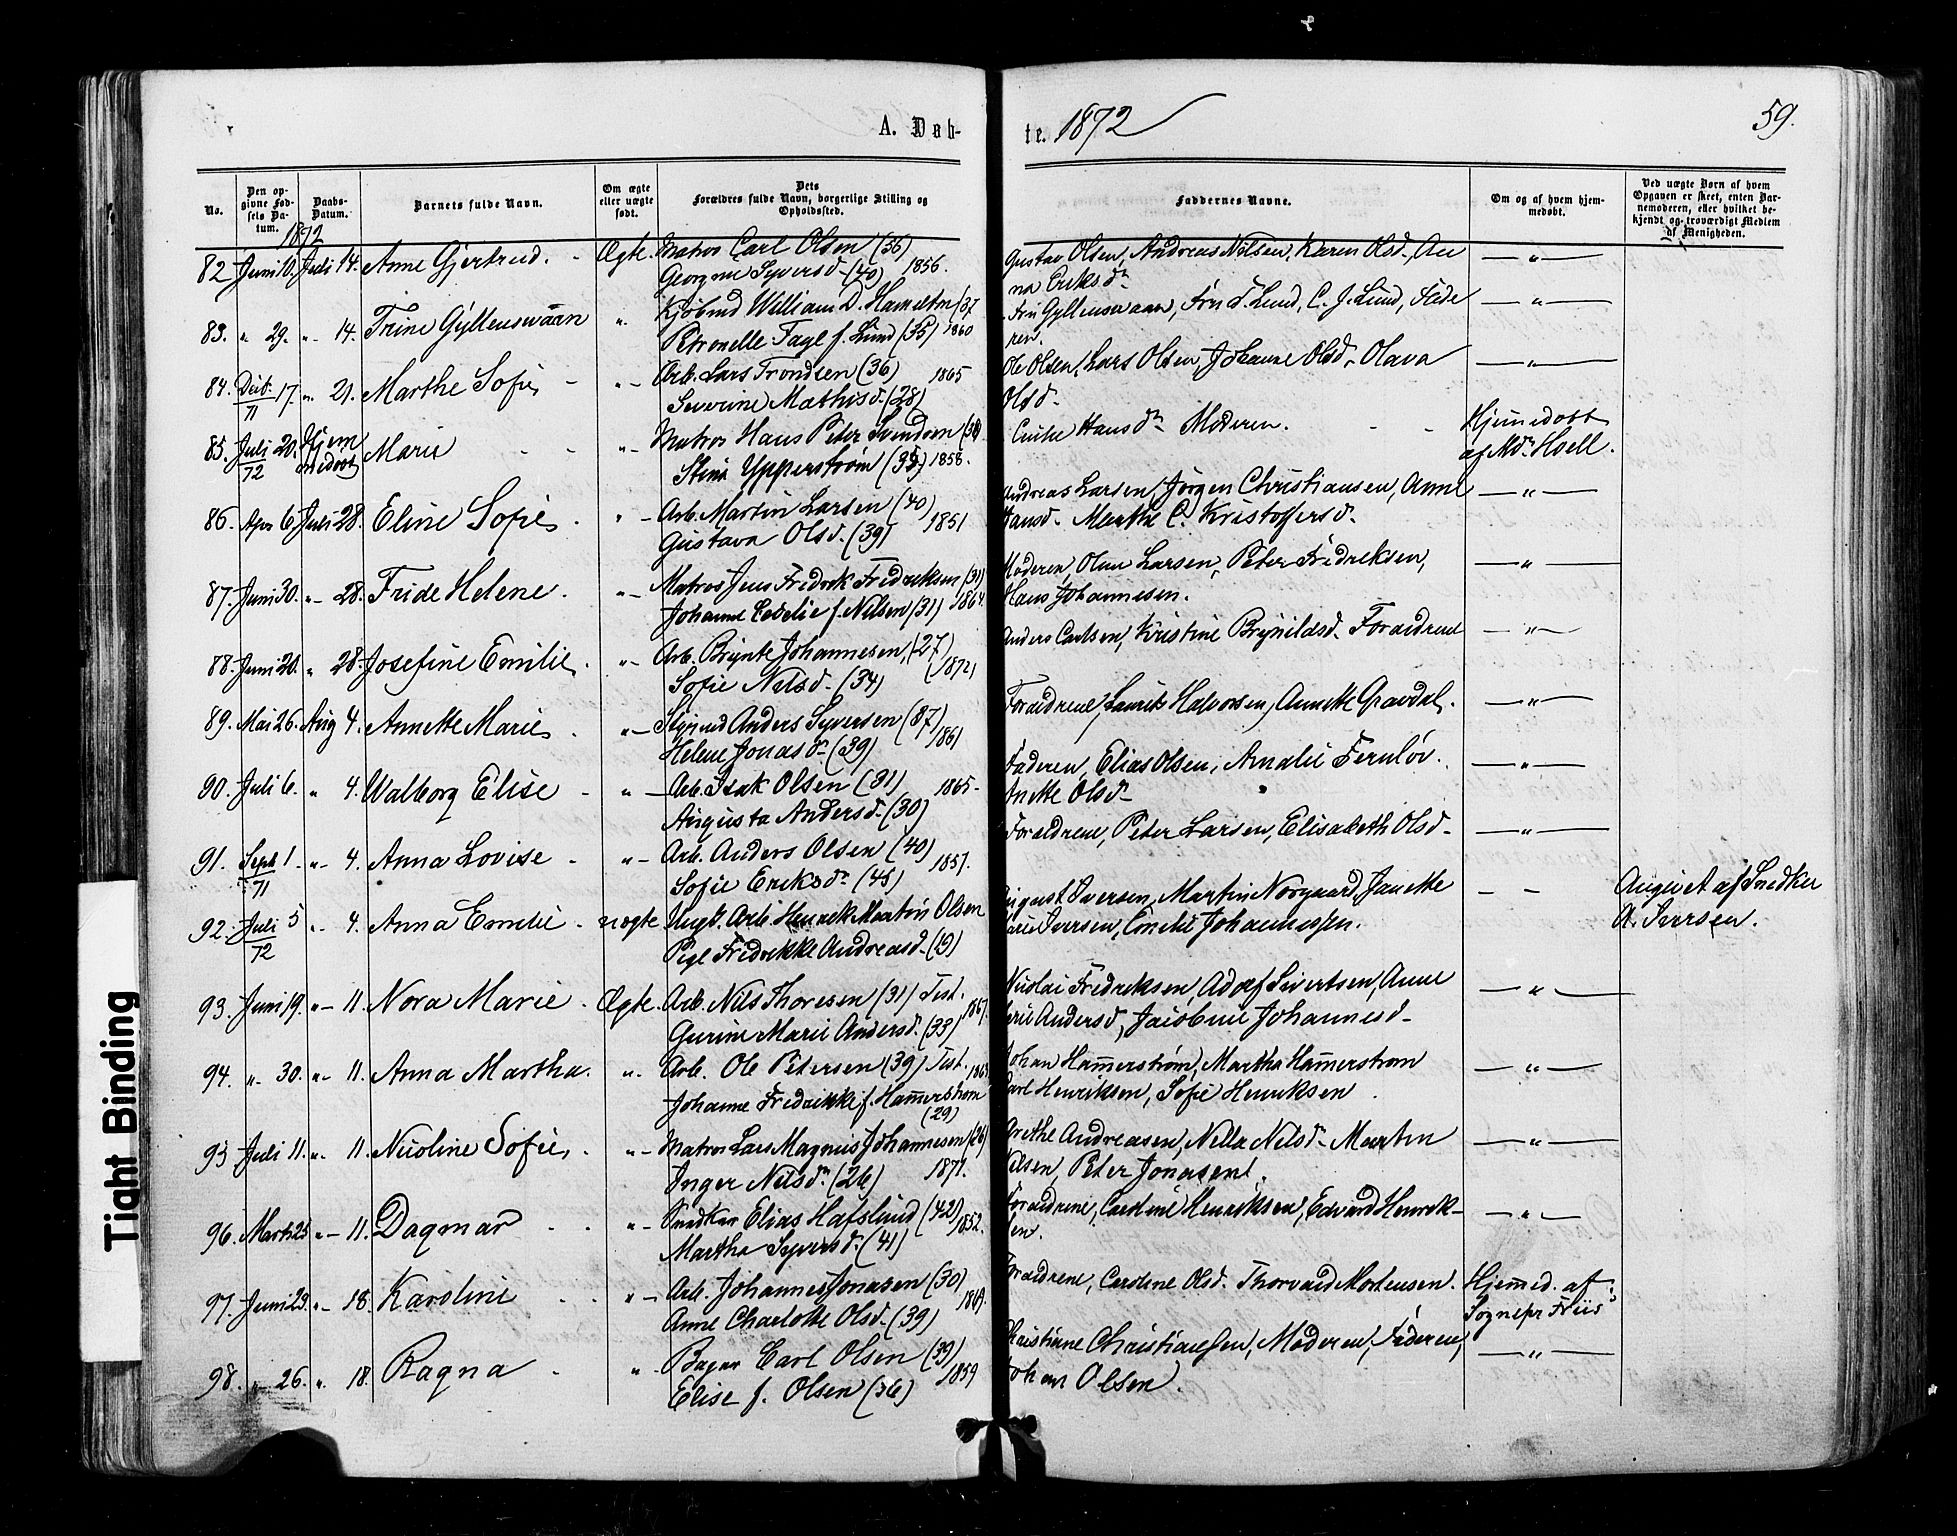 A. Døb-
te. 1872
59.
No.
Den op-
givne Fød-
sels Da-
tum.
Daabs-
Datum.
Barnets fulde Navn.
Om ægte
eller uægte
født.
Dets
Forældres fulde Navn, borgerlige Stilling og
Opholdssted.
Faddernes Navne.
Om og af hvem hjem-
medøbt.
Ved uægte Børn af hvem
Opgaven er skeet, enten Bar-
nemoderen, eller hvilket be-
kjendt og troværdigt Medlem
af Menigheden.
1872
82 Juni 10. Juli 14. Anne Gjertrud. Ægte. Matros Carl Olsen (36)
Syversd. (40) 1856.
Gustav Olsen, Andreas Nilsen, Karen Olsd., An
na Eriksdr
— " —
83. " 29. " 14. Trine Gyllenswaan " William D. Hamelton (37
Petronelle Fagl f. Lund (35) 1860
Gyllenswaan, Lund, C. J. Lund, Fade
ren.
— " —
84. Decb. 17. " 21. Marthe Sofie " Arb. Lars Trondsen (36) 1865
71
Severine Mathisd. (28)
Ole Olsen, Lars Olsen, Johanne Olsd., Olava
Olsd.
— " —
85. Juli 20. Hjem Marie " Matros Hans Peter Svendsen
72 medøbt
Stina Ypperstrøm 1858.
Hansdr Moderen.
Hjemmedøbt
af Md. Hoell.
86. Apr 6. Juli 28. Eline Sofie " Arb. Martin Larsen (40)
Gustava Olsd. (39) 1851
Andreas Larsen, Jørgen Christiansen, Anne
Hansd. Marthe C. Kristoffersd.
— " —
87. Juni 30. " 28. Fride Helene. " Matros Jens Fredrik Fredriksen (31)
Johanne f. Nilsen (31) 1864
Moderen, Larsen, Peter Fredriksen,
Hans Johannesen.
— " —
88. Juni 20. " 28. Josefine Emilie " Arb. Brynte Johannesen, (27)
Sofie Nilsd. (34) (1872)
Anders Carlsen, Kristine Brynildsd. Forældrene
— " —
89. Mai 26. Aug 4. Annette Marie " Anders Syversen (37)
Helene Jonasdr (39) 1861
Forældrene, Laurits Halvorsen, Annette Gravdal.
— " —
90. Juli 6. " 4. Walborg Elise " Arb. Isak Olsen (31) 1865
Augusta Andersd. (30)
Faderen, Elias Olsen, Amalie Fernløv.
Anette Olsd
— " —
91. Sept 1 " 4. Anna Lovise " Arb. Anders Olsen (40)
71
Sofie Eriksdr (45) 1857.
Forældrene, Peter Larsen, Elisabeth Olsd
— " —
92. Juli 5 " 4. Anna Emilie uægte Ungk. Arb. Henrik Martin Olsen
72
Pige Fredrikke Andreasd. (19)
August Iversen, Martin Norgaard, Janette
Marie Iversen, Emilie Johannessen.
— —
Angivet af Snedker
A. Iversen.
93. Juni 19. " 11. Nora Marie Ægte. Arb. Nils Thoresen (31) Tist.
Gurine Marie Andersd. (33) 1867
Nicolai Fredriksen, Adolf Sivertsen, Anne
Marie Andersd, Jacobine Johannesd
— " —
94. " 30. " 11. Anna Martha. " Arb. Ole Petersen (39) Tist.
Johanne Fredrikke f. Hammerstrøm
(29)
Johan Hammerstrøm, Martha Hammerstrøm
Carl Henriksen, Sofie Henriksen
— " —
95 Juli 11. " 11. Nicoline Sofie " Matros Lars Magnus Johannesen (26)
Inger Nilsdr (26) 1871.
Grethe Andreasen, Nella Nilsd. Martin
Nilsen, Peter Jonasen.
— " —
96. Marts 25 " 11. Dagmar " Snedker Elias Hafslund (42)
Martha Syversd. (41) 1852.
Forældrene, Caroline Henriksen, Edvard Henrik-
sen.
— " —
97. Juni 23. " 18. Karoline " Arb. Johannes Jonasen (30)
Anne Charlotte Olsd. (39) 1869.
Forældrene, Caroline Olsd. Thorvald Mortensen.
Hjemmed. af
Sognepr Friis
98. " 26. " 18. Ragna " Bager Carl Olsen (39)
Elise f. Olsen (36) 1859
Christiane Christiansen, Moderen, Faderen,
Johan Olsen.
— " —
Tight Binding